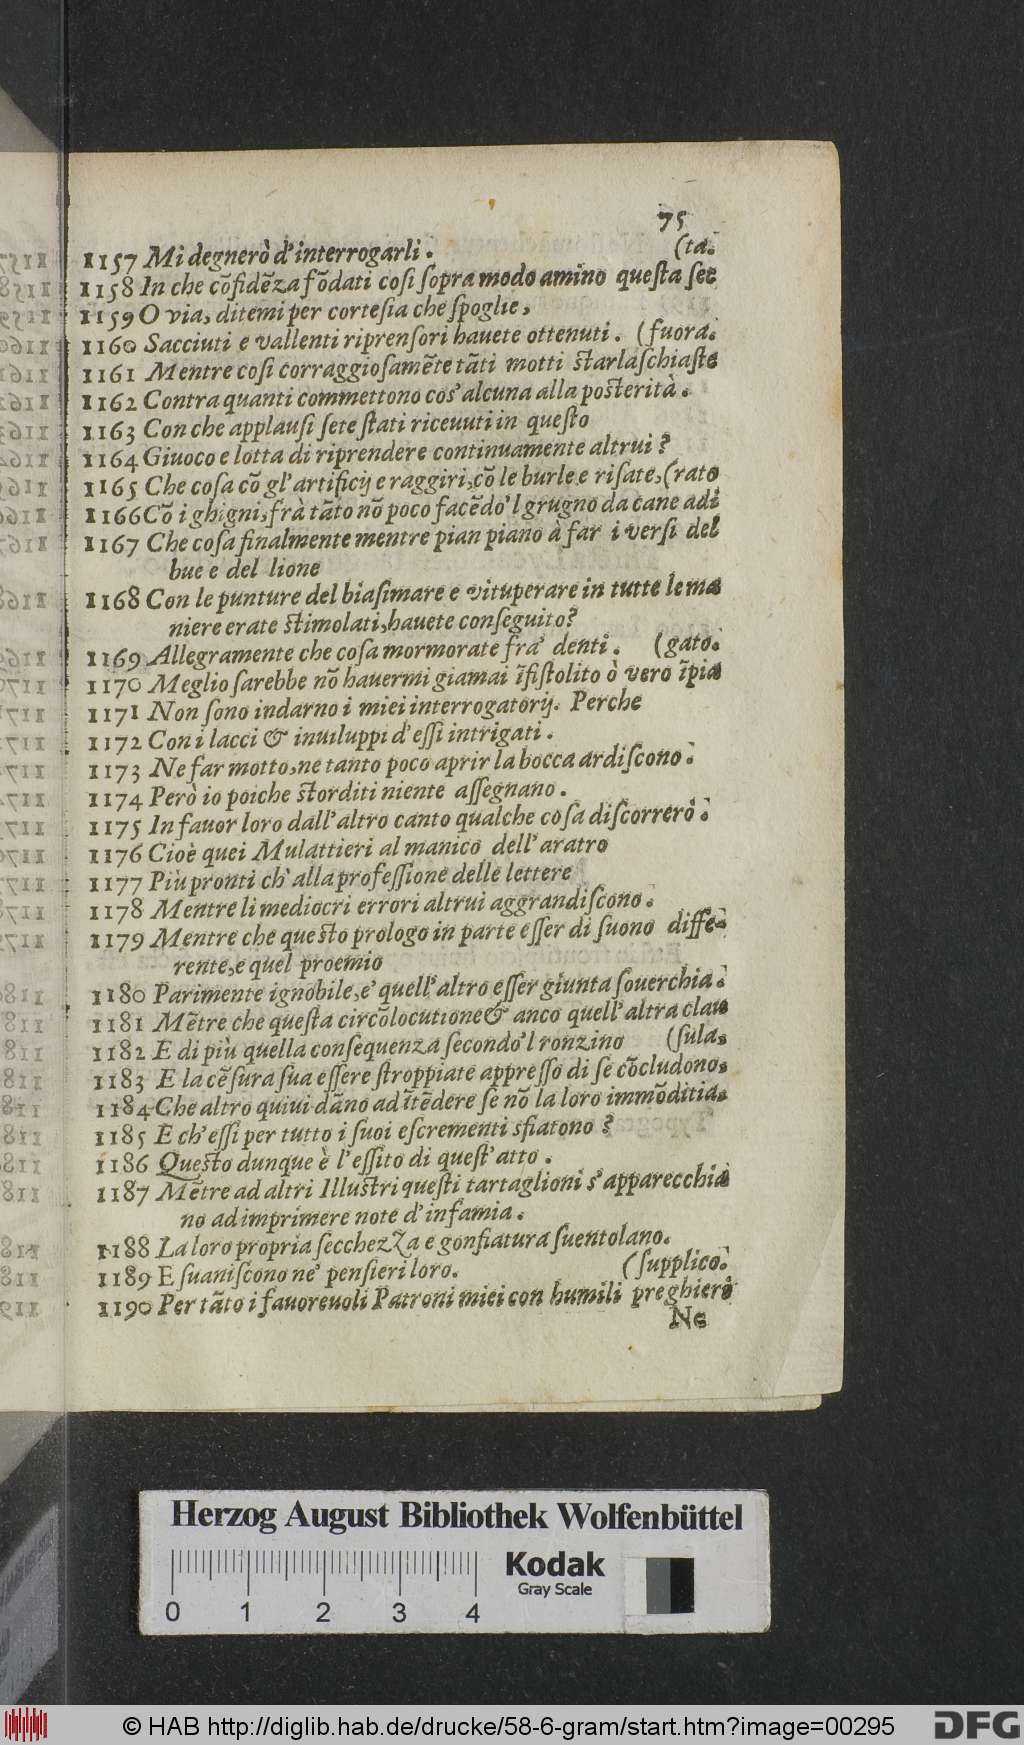 75
1157 Mi degnerò d'interrogarli. (ta.
1158 In che cõfidẽza fõdati cosi sopra modo amino questa set
1159 O via, ditemi per cortesia che spoglie,
1160 Sacciuti e vallenti riprensori hauete ottenuti. (fuora.
1161 Mentre cosi corraggiosamẽte tãti motti starlaschiaste
1162 Contra quanti commettono cos' alcuna alla posterità.
1163 Con che applausi sete stati riceuuti in questo
1164 Giuoco e lotta di riprendere continuamente altrui?
1165 Che cosa cõ gl' artificij e raggiri, cõ le burle e risate, (rato
1166 Cõ i ghigni, frà tãto nõ poco facẽdo'l grugno da cane adi
1167 Che cosa finalmente mentre pian piano à far i versi del
bue e del lione
1168 Con le punture del biasimare e vituperare in tutte le ma
niere erate stimolati, hauete conseguito?
1169 Allegramente che cosa mormorate fra' denti. (gato.
1170 Meglio sarebbe nõ hauermi giamai ĩfistolito ò vero ĩpia
1171 Non sono indarno i miei interrogatorij. Perche
1172 Con i lacci & inuiluppi d'essi intrigati.
1173 Ne far motto, ne tanto poco aprir la bocca ardiscono.
1174 Però io poiche storditi niente assegnano.
1175 In fauor loro dall' altro canto qualche cosa discorrerò.
1176 Cioè quei Mulattieri al manico dell' aratro
1177 Più pronti ch' alla professione delle lettere
1178 Mentre li mediocri errori altrui aggrandiscono.
1179 Mentre che questo prologo in parte esser di suono diffe-
rente, e quel proemio
1180 Parimente ignobile, e' quell' altro esser giunta souerchia.
1181 Mẽtre che questa circõlocutione & anco quell' altra clau
1182 E di più quella consequenza secondo'l ronzino (sula.
1183 E la cẽsura sua essere stroppiate appresso di se cõcludono.
1184 Che altro quiui dãno ad ĩtẽdere se nõ la loro immõditia.
1185 E ch' essi per tutto i suoi escrementi sfiatono?
1186 Questo dunque è l' essito di quest' atto.
1187 Mẽtre ad altri Illustri questi tartaglioni s' apparecchia
no ad imprimere note d' infamia.
1188 La loro propria secchezza e gonfiatura suentolano.
1189 E suaniscono ne' pensieri loro. (supplico.
1190 Per tãto i fauoreuoli Patroni miei con humili preghiero
Ne
Herzog August Bibliothek Wolfenbüttel
Kodak
Gray Scale
0 1 2 3 4
© HAB http://diglib.hab.de/drucke/58-6-gram/start.htm?image=00295
DFG